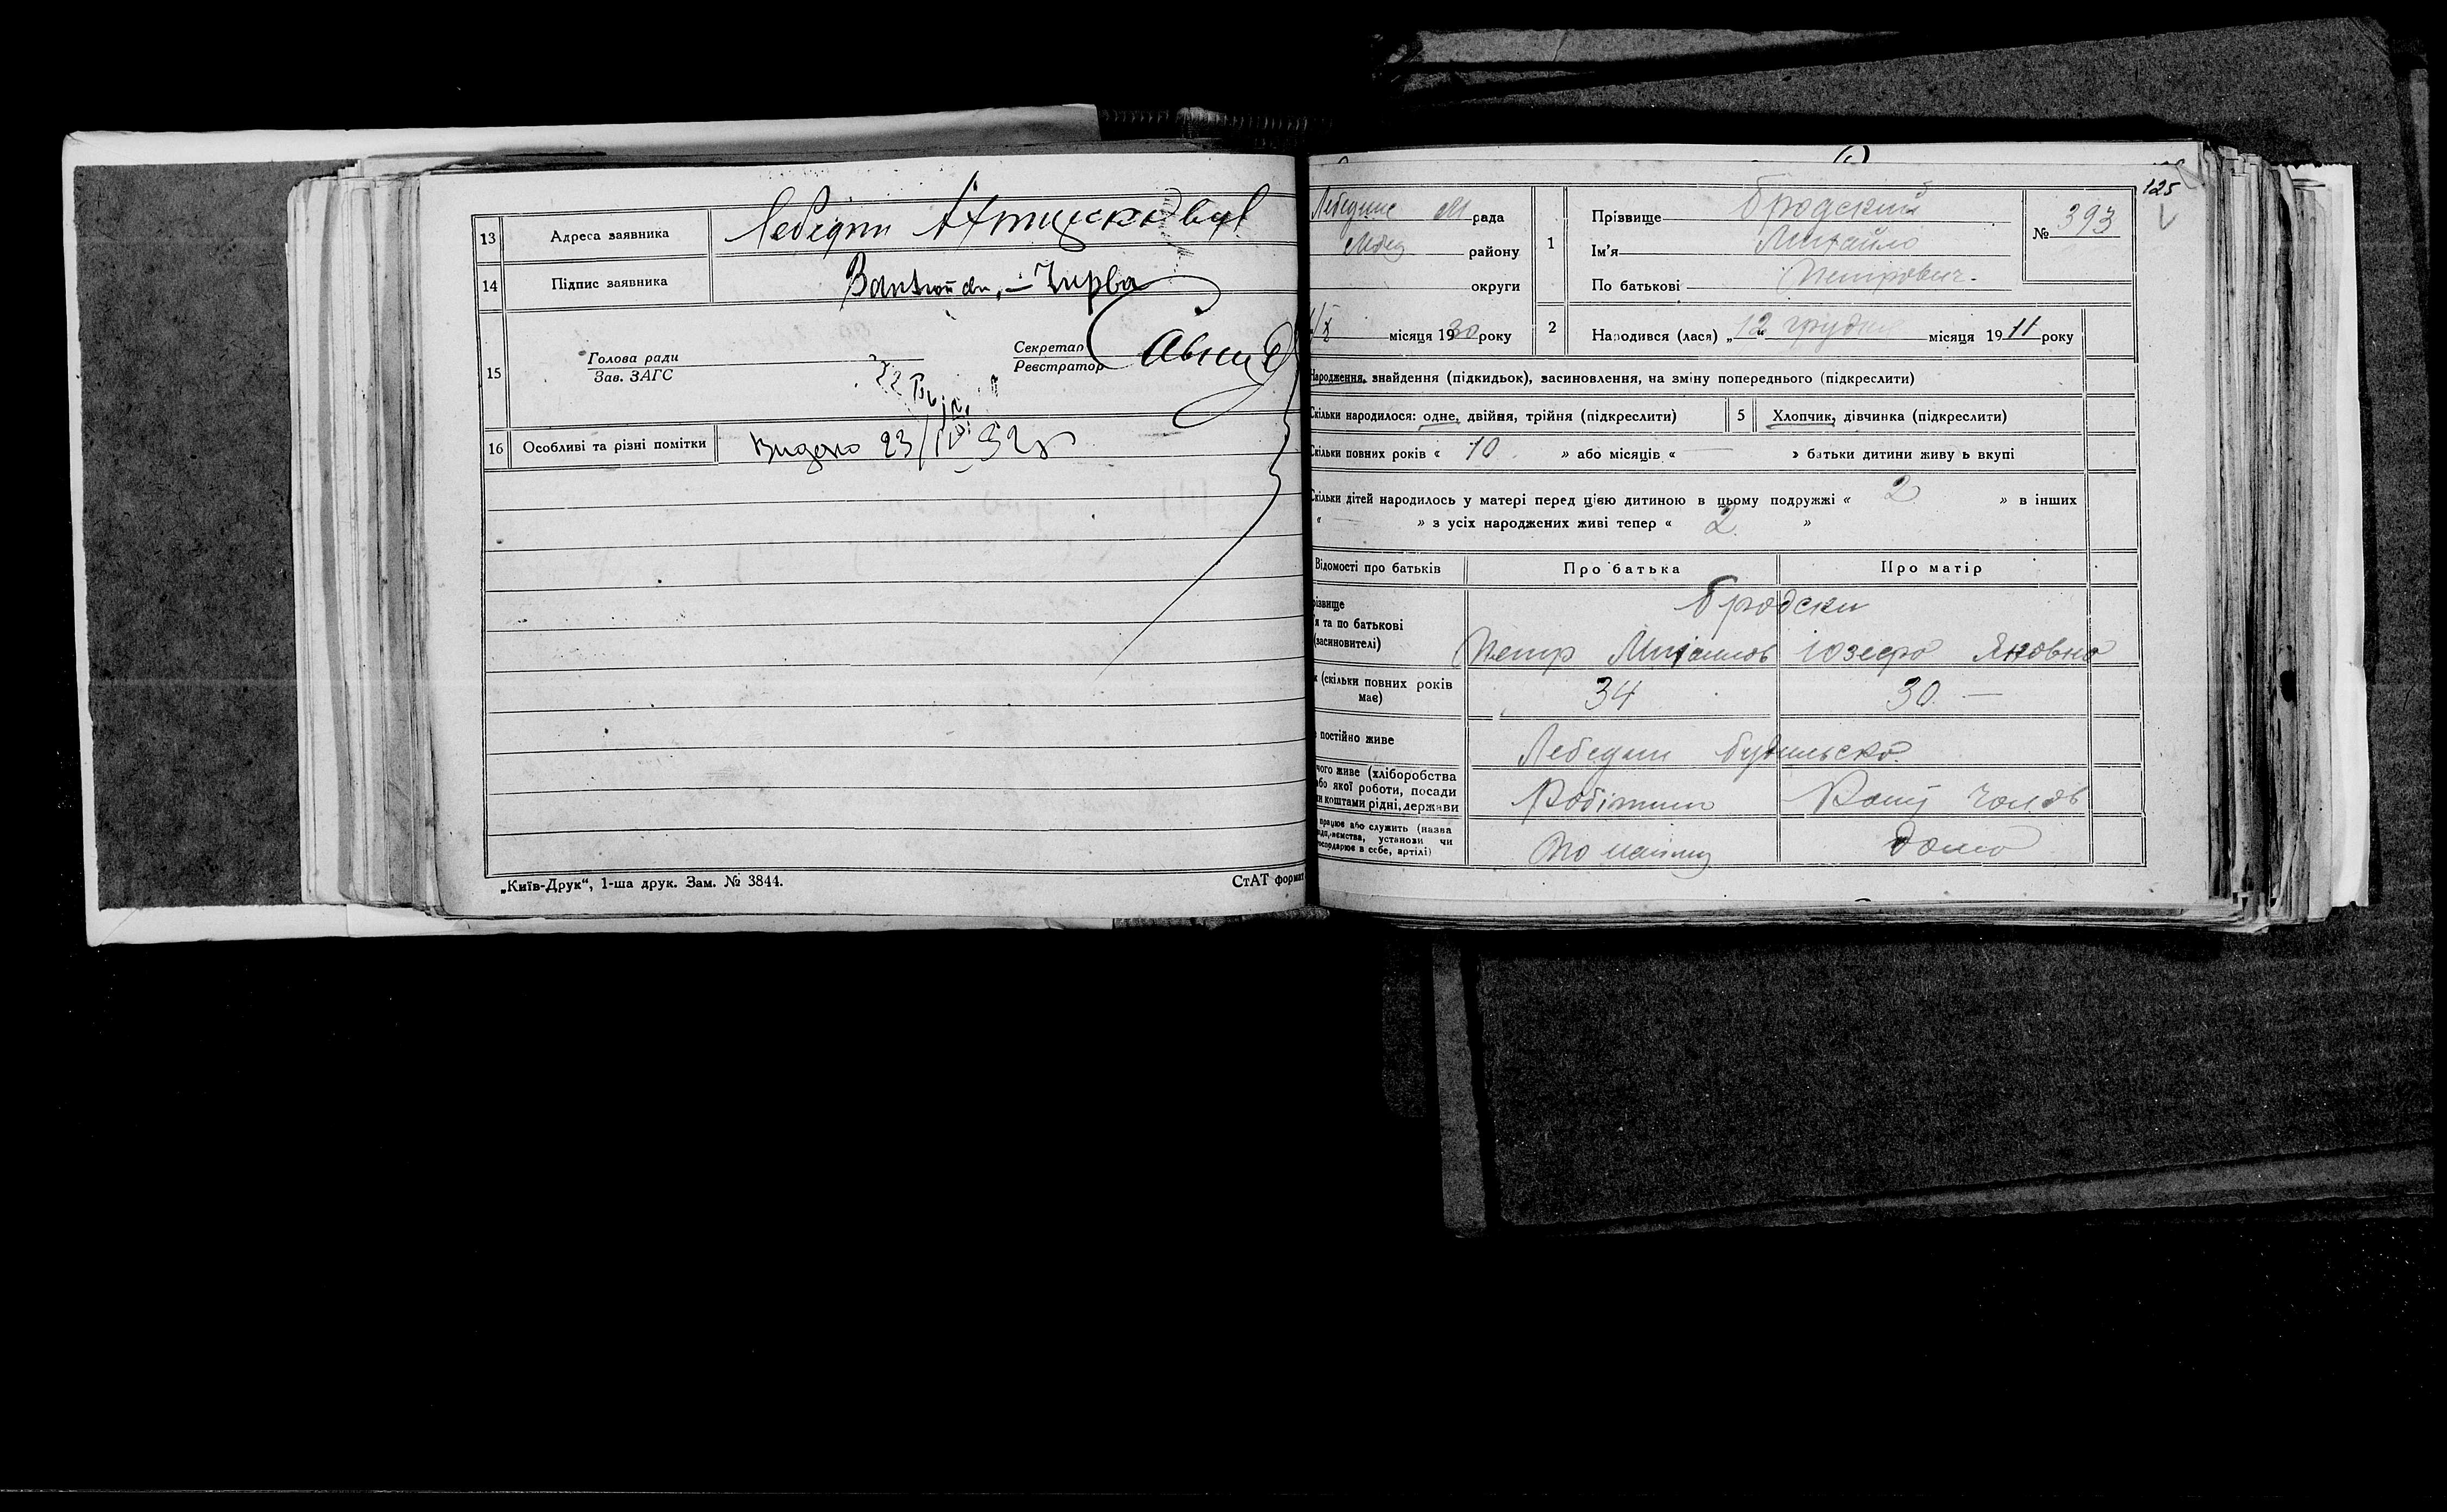 13 Адреса заявника Лебедин
14 Підпис заявника
15
Голова ради
Зав. ЗАГС
Секретар
Реєстратор
16 Особливі та різні помітки Видано 23/IV 32р
„Київ-Друк“, 1-ша друк. Зам. № 3844.
СтАТ формат
125
рада
району
округи
місяця 1930 року
1
Прізвище Бродский
Ім'я Михайло
По батькові Петрович.
№ 393
2 Народився (лася) „12 грудня місяця 1911 року
Народження, знайдення (підкидьок), засиновлення, на зміну попереднього (підкреслити)
Скільки народилося: одне, двійня, трійня (підкреслити) 5 Хлопчик, дівчинка (підкреслити)
Скільки повних років « 10 » або місяців « — » батьки дитини живу ь вкупі
Скільки дітей народилось у матері перед цією дитиною в цьому подружжі « 2 » в інших
« — » з усіх народжених живі тепер « 2 »
Відомості про батьків Про батька Про матір
різвище
я та по батькові
(засиновителі)
Бродски
Петр Михаилов Юзефа Яновна
(скільки повних років
має)
34 30 —
постійно живе Лебедин
чого живе (хліборобства
або якої роботи, посади
чи коштами рідні, держави
Робітник
працює або служить (назва
установи чи
господарює в себе, артілі)
По найму дома